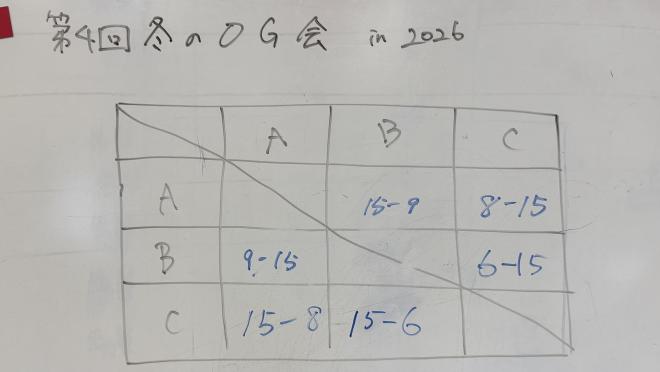 第4回 冬のOG会 in 2026
A B C
A 15-9 8-15
B 9-15 6-15
C 15-8 15-6